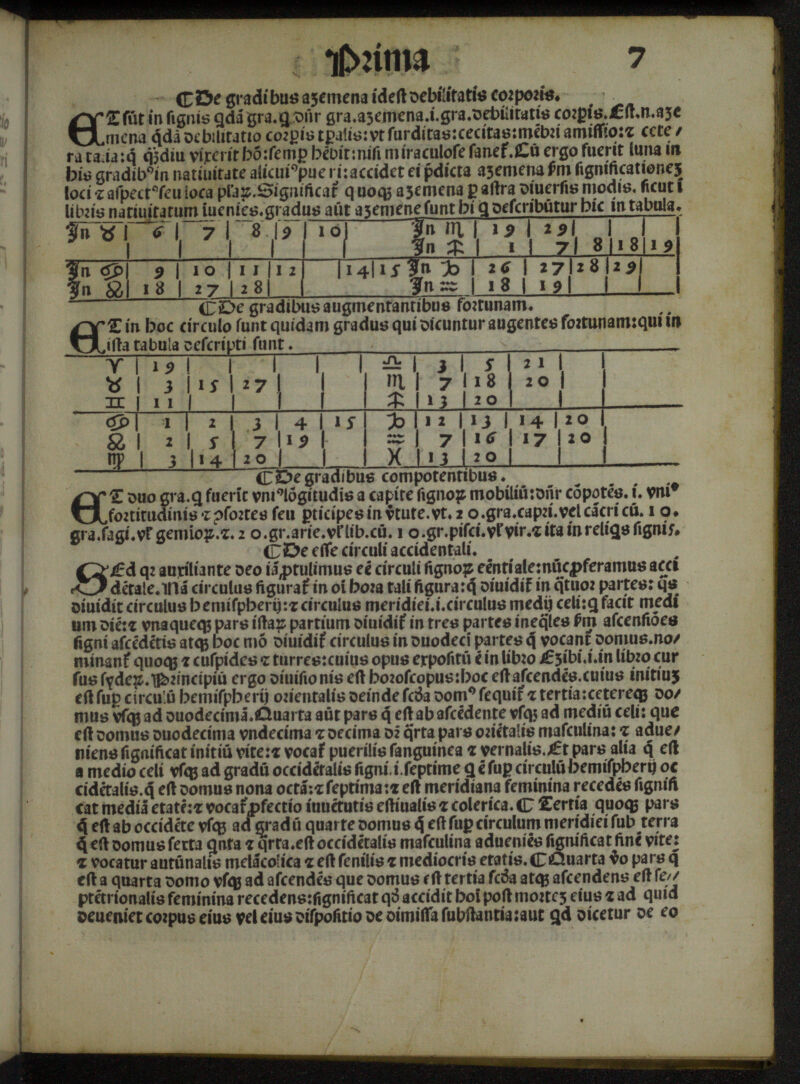 Prima 7
¶De gradibus azemena idest debilitatis corporis.
ET sũt in signis qdã gra. q dñr gra. azemena .i. gra. debilitatis corpis. Est .n. aze
mena qdã debilitatio corpis tpalis: vt surditas: cecitas: mẽbri amissio: ⁊ cete/
ra talia: q̃ qzdiu vixerit hõ: semp hẽbit: nisi miraculose sanet̃. Cũ ergo fuerit luna in
his gradibꝰ in natiuitate alicuiꝰ pueri: accidet ei pdicta azemena ẜm significationez
loci ⁊ aspectꝰ seu loca pl'aꝝ. Significat̃ quoqꝫ azemena p astra diuersis modis. sicut ĩ
libris natiuitatum inuenies. gradus aũt azemene sunt hi q describũtur hic in tabula.
In ♉ | 6 | 7 | 8 | 9 | 10 | In ♏ | 19 | 29 |
In ♐ | 1 | 7 | 8 | 18 | 19
In ♋ | 9 | 10 | 11 | 12 | 14 | 15 In ♑ | 26 | 27 | 28 | 29 |
In ♌ | 18 | 27 | 28 | In ♒ | 18 | 19 |
¶De gradibus augmentantibus fortunam.
ET in hoc circulo sunt quidam gradus qui dicuntur augentes fortunam: qui in
ista tabula descripti sunt.
♈ | 19 | ♎ | 3 | 5 | 21 |
♉ | 3 | 15 | 27 | ♏ | 7 | 18 | 20 |
♊ | 11 | ♐ | 13 | 20 |
♋ | 1 | 2 | 3 | 4 | 15 | ♑ | 12 | 13 | 14 | 20 |
♌ | 2 | 5 | 7 | 19 | ♒ | 7 | 16 | 17 | 20 |
♍ | 3 | 14 | 20 | ♓ | 13 | 20 |
¶De gradibus compotentibus.
ET duo gra. q fuerit vniꝰ lõgitudis a capite signoꝝ mobiliũ: dñr cõpotẽs .i. vniꝰ
fortitudinis ⁊ pfortes seu pticipes in v̾tute. vt. 20. gra. capri. vel cãcri cũ. 10.
gra. sagi. vl' gemioꝝ. ⁊. 20. gr. arie. vl' lib. cũ. 10. gr. pisci. vl' vir. ⁊ ita in reliqs signis.
¶De esse circuli accidentali.
SEd qꝛ auxiliante deo iã ꝓtulimus eẽ circuli signoꝝ eẽntiale: nũc ꝓferamus acci
dẽtale. Nã circulus figurat̃ in oĩ hora tali figura: q̃ diuidit̃ in q̃tuor partes: qs
diuidit circulus hemispherij: ⁊ circulus meridiei .i. circulus medij celi: q facit medi
um diẽ: ⁊ vnaqueqꝫ pars istaꝝ partium diuidit̃ in tres partes ineq̃les ẜm ascensiões
signi ascẽdẽtis atqꝫ hoc mõ diuidit̃ circulus in duodeci partes q̃ vocant̃ domus. no/
minant̃ quoqꝫ ⁊ cuspides ⁊ turres: cuius opus expositũ ẽ in libro Ezibi .i. in libro cur
sus syderꝝ. Principiũ ergo diuisionis est horoscopus: hoc est ascendẽs. cuius initiuz
est sup circulũ hemispherij orientalis deinde scd̾a domꝰ sequit̃ ⁊ tertia: cetereqꝫ do/
mus vsqꝫ ad duodecimã. Quarta aũt pars q̃ est ab ascẽdente vsqꝫ ad mediũ celi: que
est domus duodecima vndecima ⁊ decima dꝛ q̃rta pars oriẽtalis masculina: ⁊ adue/
niens significat initiũ vite: ⁊ vocat̃ puerilis sanguinea ⁊ vernalis. Et pars alia q̃ est
a medio celi vsqꝫ ad gradũ occidẽtalis signi .i. septime q ẽ sup circulũ hemispherij oc
cidẽtalis. q̃ est domus nona octã: ⁊ septima: ⁊ est meridiana feminina recedẽs signifi
cat mediã etatẽ: ⁊ vocat̃ ꝓfectio iuuẽtutis estiualis ⁊ colerica. ¶Tertia quoqꝫ pars
q̃ est ab occidẽte vsqꝫ ad gradũ quarte domus q̃ est sup circulum meridiei sub terra
q̃ est domus sexta qnta ⁊ q̃rta. est occidẽtalis masculina adueniẽs significat finẽ vite:
⁊ vocatur autũnalis melãcolica ⁊ est senilis ⁊ mediocris etatis. ¶Quarta v̾o pars q̃
est a quarta domo vsqꝫ ad ascendẽs que domus est tertia scd̾a atqꝫ ascendens est se//
ptẽtrionalis feminina recedens: significat qd̾ accidit hoĩ post mortez eius ⁊ ad quid
deueniet corpus eius vel eius dispositio de dimissa substantia: aut qd dicetur de eo